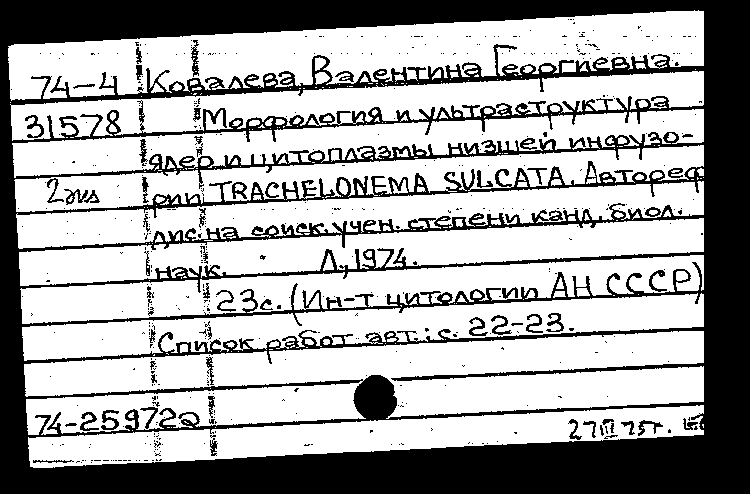 74-4 Ковалева, Валентина Георгиевна.
31578 Морфология и ультраструктура
ядер и цитоплазмы низшей инфузо-
2 экз рии TRACHELONEMA SULCATA. Автореф
дис. на соиск. учен. степени канд. биол.
наук. Л., 1974.
23с. (Ин-т цитологии АН СССР)
Список работ авт.: с. 22-23.
74-25972
27 III 75г.